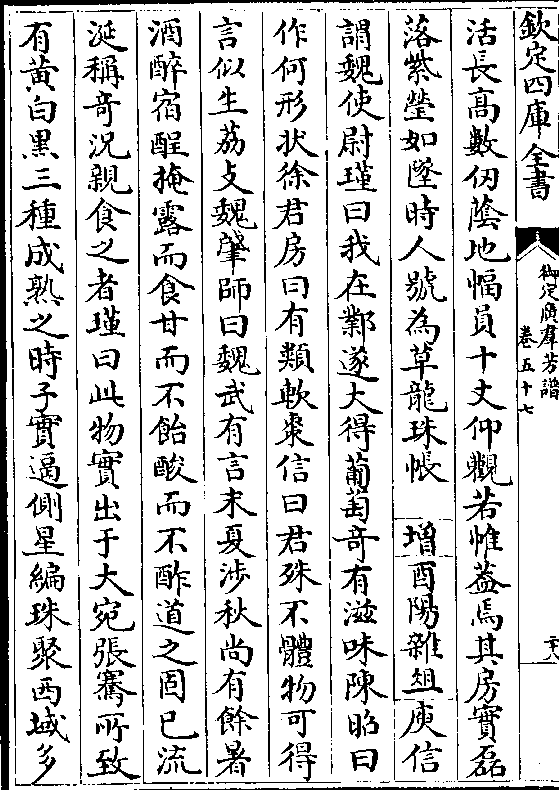 欽定四庫全書
御定廣羣芳譜
卷五十七
二十八
活長高數仞蔭地幅員十丈仰觀若帷葢焉其房實磊
落紫瑩如墜時人號為草龍珠帳 增酉陽雜俎庾信
謂魏使尉瑾曰我在鄴遂大得葡萄奇有滋味陳昭曰
作何形狀徐君房曰有類軟棗信曰君殊不體物可得
言似生荔攴魏肇師曰魏武有言末夏涉秋尚有餘暑
酒醉宿酲掩露而食甘而不飴酸而不酢道之固已流
涎稱奇況親食之者瑾曰此物實出于大宛張騫所致
有黃白黑三種成熟之時子實逼側星編珠聚西域多